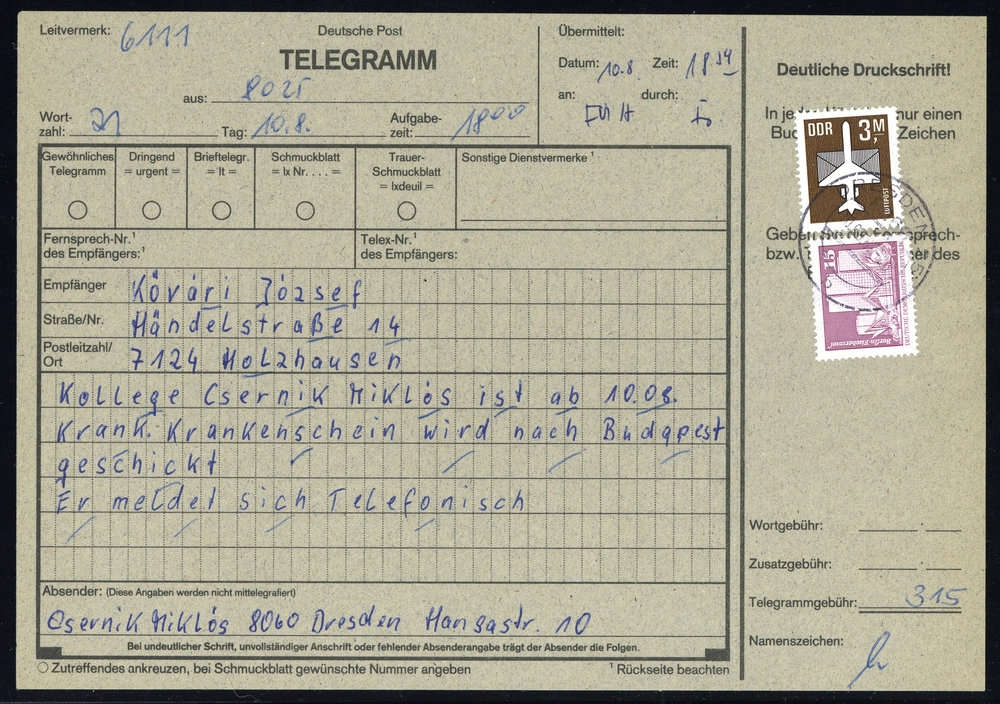 Leitvermerk: 6111
Deutsche Post
TELEGRAMM
aus: 8025
Wort-
zahl: 21 Tag: 10.8. Aufgabe-
zeit: 1800
Übermittelt:
Datum: 10.8. Zeit: 1834
an: durch:
Deutliche Druckschrift!
In je nur einen
Buc Zeichen
Geben
bzw. des
Gewöhnliches
Telegramm
Dringend
= urgent =
Brieftelegr.
= lt =
Schmuckblatt
= lx Nr. . . . =
Trauer-
Schmuckblatt
= lxdeuil =
Sonstige Dienstvermerke ¹
Fernsprech-Nr.¹
des Empfängers:
Telex-Nr.¹
des Empfängers:
Empfänger Kővári József
Straße/Nr. Händelstraße 14
Postleitzahl/
Ort 7124 Holzhausen
Kollege Csernik Miklós ist ab 10.08.
Krank. Krankenschein wird nach Budapest
geschickt
Er meldet sich Telefonisch
Absender: (Diese Angaben werden nicht mittelegrafiert)
Csernik Miklós 8060 Dresden Hansastr. 10
Bei undeutlicher Schrift, unvollständiger Anschrift oder fehlender Absenderangabe trägt der Absender die Folgen.
Zutreffendes ankreuzen, bei Schmuckblatt gewünschte Nummer angeben
¹ Rückseite beachten
DDR 3,M
LUFTPOST
15
DEUTSCHE DEMOKRATISCHE REPUBLIK
DRESDEN
Wortgebühr:
Zusatzgebühr:
Telegrammgebühr: 315
Namenszeichen: